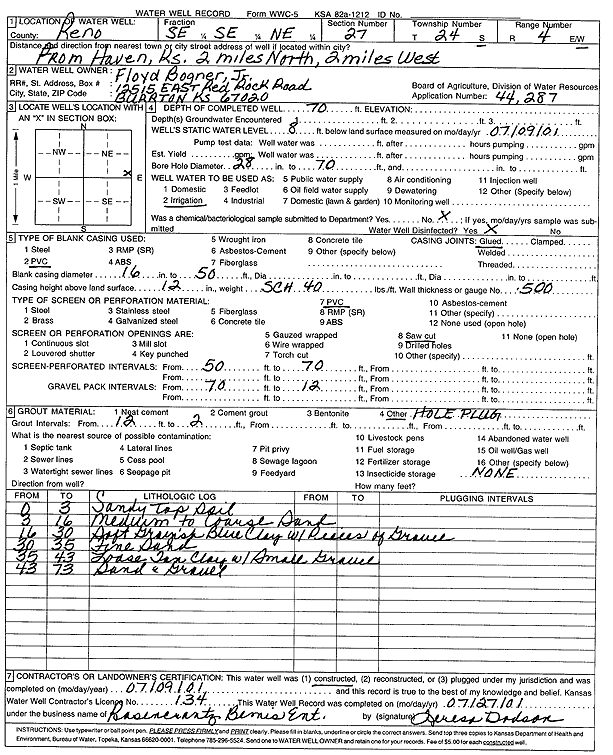 WATER WELL RECORD Form WWC-5 KSA 82a-1212 ID No.
1 LOCATION OF WATER WELL: Fraction Section Number Township Number Range Number
County: Reno SE ¼ SE ¼ NE ¼ 27 T 24 S R 4 E/W
Distance and direction from nearest town or city street address of well if located within city?
From Haven, Ks. 2 miles North, 2 miles West
2 WATER WELL OWNER: Floyd Bogner, Jr.
RR#, St. Address, Box # : 12515 East Red Rock Road Board of Agriculture, Division of Water Resources
City, State, ZIP Code : Burrton KS 67020 Application Number: 44,287
3 LOCATE WELL'S LOCATION WITH AN "X" IN SECTION BOX:
N
NW NE
W E
X
SW SE
S
1 Mile
4 DEPTH OF COMPLETED WELL 70 ft. ELEVATION:
Depth(s) Groundwater Encountered ft. 2. ft. 3. ft.
WELL'S STATIC WATER LEVEL 8 ft. below land surface measured on mo/day/yr 07/09/01
Pump test data: Well water was ft. after hours pumping gpm
Est. Yield gpm: Well water was ft. after hours pumping gpm
Bore Hole Diameter 28 in. to 70 ft., and in. to ft.
WELL WATER TO BE USED AS: 5 Public water supply 8 Air conditioning 11 Injection well
1 Domestic 3 Feedlot 6 Oil field water supply 9 Dewatering 12 Other (Specify below)
2 Irrigation 4 Industrial 7 Domestic (lawn & garden) 10 Monitoring well
Was a chemical/bacteriological sample submitted to Department? Yes No X ; If yes, mo/day/yrs sample was sub-
mitted Water Well Disinfected? Yes X No
5 TYPE OF BLANK CASING USED: 5 Wrought iron 8 Concrete tile CASING JOINTS: Glued Clamped
1 Steel 3 RMP (SR) 6 Asbestos-Cement 9 Other (specify below) Welded
2 PVC 4 ABS 7 Fiberglass Threaded
Blank casing diameter 16 in. to 50 ft., Dia in. to ft., Dia in. to ft.
Casing height above land surface 12 in., weight SCH 40 lbs./ft. Wall thickness or gauge No. .500
TYPE OF SCREEN OR PERFORATION MATERIAL: 7 PVC 10 Asbestos-cement
1 Steel 3 Stainless steel 5 Fiberglass 8 RMP (SR) 11 Other (specify)
2 Brass 4 Galvanized steel 6 Concrete tile 9 ABS 12 None used (open hole)
SCREEN OR PERFORATION OPENINGS ARE: 5 Gauzed wrapped 8 Saw cut 11 None (open hole)
1 Continuous slot 3 Mill slot 6 Wire wrapped 9 Drilled holes
2 Louvered shutter 4 Key punched 7 Torch cut 10 Other (specify) ft.
SCREEN-PERFORATED INTERVALS: From 50 ft. to 70 ft., From ft. to ft.
From ft. to ft., From ft. to ft.
GRAVEL PACK INTERVALS: From 70 ft. to 12 ft., From ft. to ft.
From ft. to ft., From ft. to ft.
6 GROUT MATERIAL: 1 Neat cement 2 Cement grout 3 Bentonite 4 Other HOLE PLUG
Grout Intervals: From 12 ft. to 2 ft., From ft. to ft., From ft. to ft.
What is the nearest source of possible contamination: 10 Livestock pens 14 Abandoned water well
1 Septic tank 4 Lateral lines 7 Pit privy 11 Fuel storage 15 Oil well/Gas well
2 Sewer lines 5 Cess pool 8 Sewage lagoon 12 Fertilizer storage 16 Other (specify below)
3 Watertight sewer lines 6 Seepage pit 9 Feedyard 13 Insecticide storage NONE
Direction from well? How many feet?
FROM TO LITHOLOGIC LOG FROM TO PLUGGING INTERVALS
0 3 Sandy Top Soil
3 16 Medium to Coarse Sand
16 30 Soft Blue Clay w/ Pieces of Gravel
30 35 Fine Sand
35 43 Loose Tan Clay w/ Small Gravel
43 73 Sand & Gravel
7 CONTRACTOR'S OR LANDOWNER'S CERTIFICATION: This water well was (1) constructed, (2) reconstructed, or (3) plugged under my jurisdiction and was
completed on (mo/day/year) 07/09/01 and this record is true to the best of my knowledge and belief. Kansas
Water Well Contractor's Licence No. 134 This Water Well Record was completed on (mo/day/yr) 07/27/01
under the business name of Rosencrantz Bemis Ent. by (signature) Teresa Dodson
INSTRUCTIONS: Use typewriter or ball point pen. PLEASE PRESS FIRMLY and PRINT clearly. Please fill in blanks, underline or circle the correct answers. Send top three copies to Kansas Department of Health and
Environment, Bureau of Water, Topeka, Kansas 66620-0001. Telephone 785-296-5524. Send one to WATER WELL OWNER and retain one for your records. Fee of $5.00 for each constructed well.